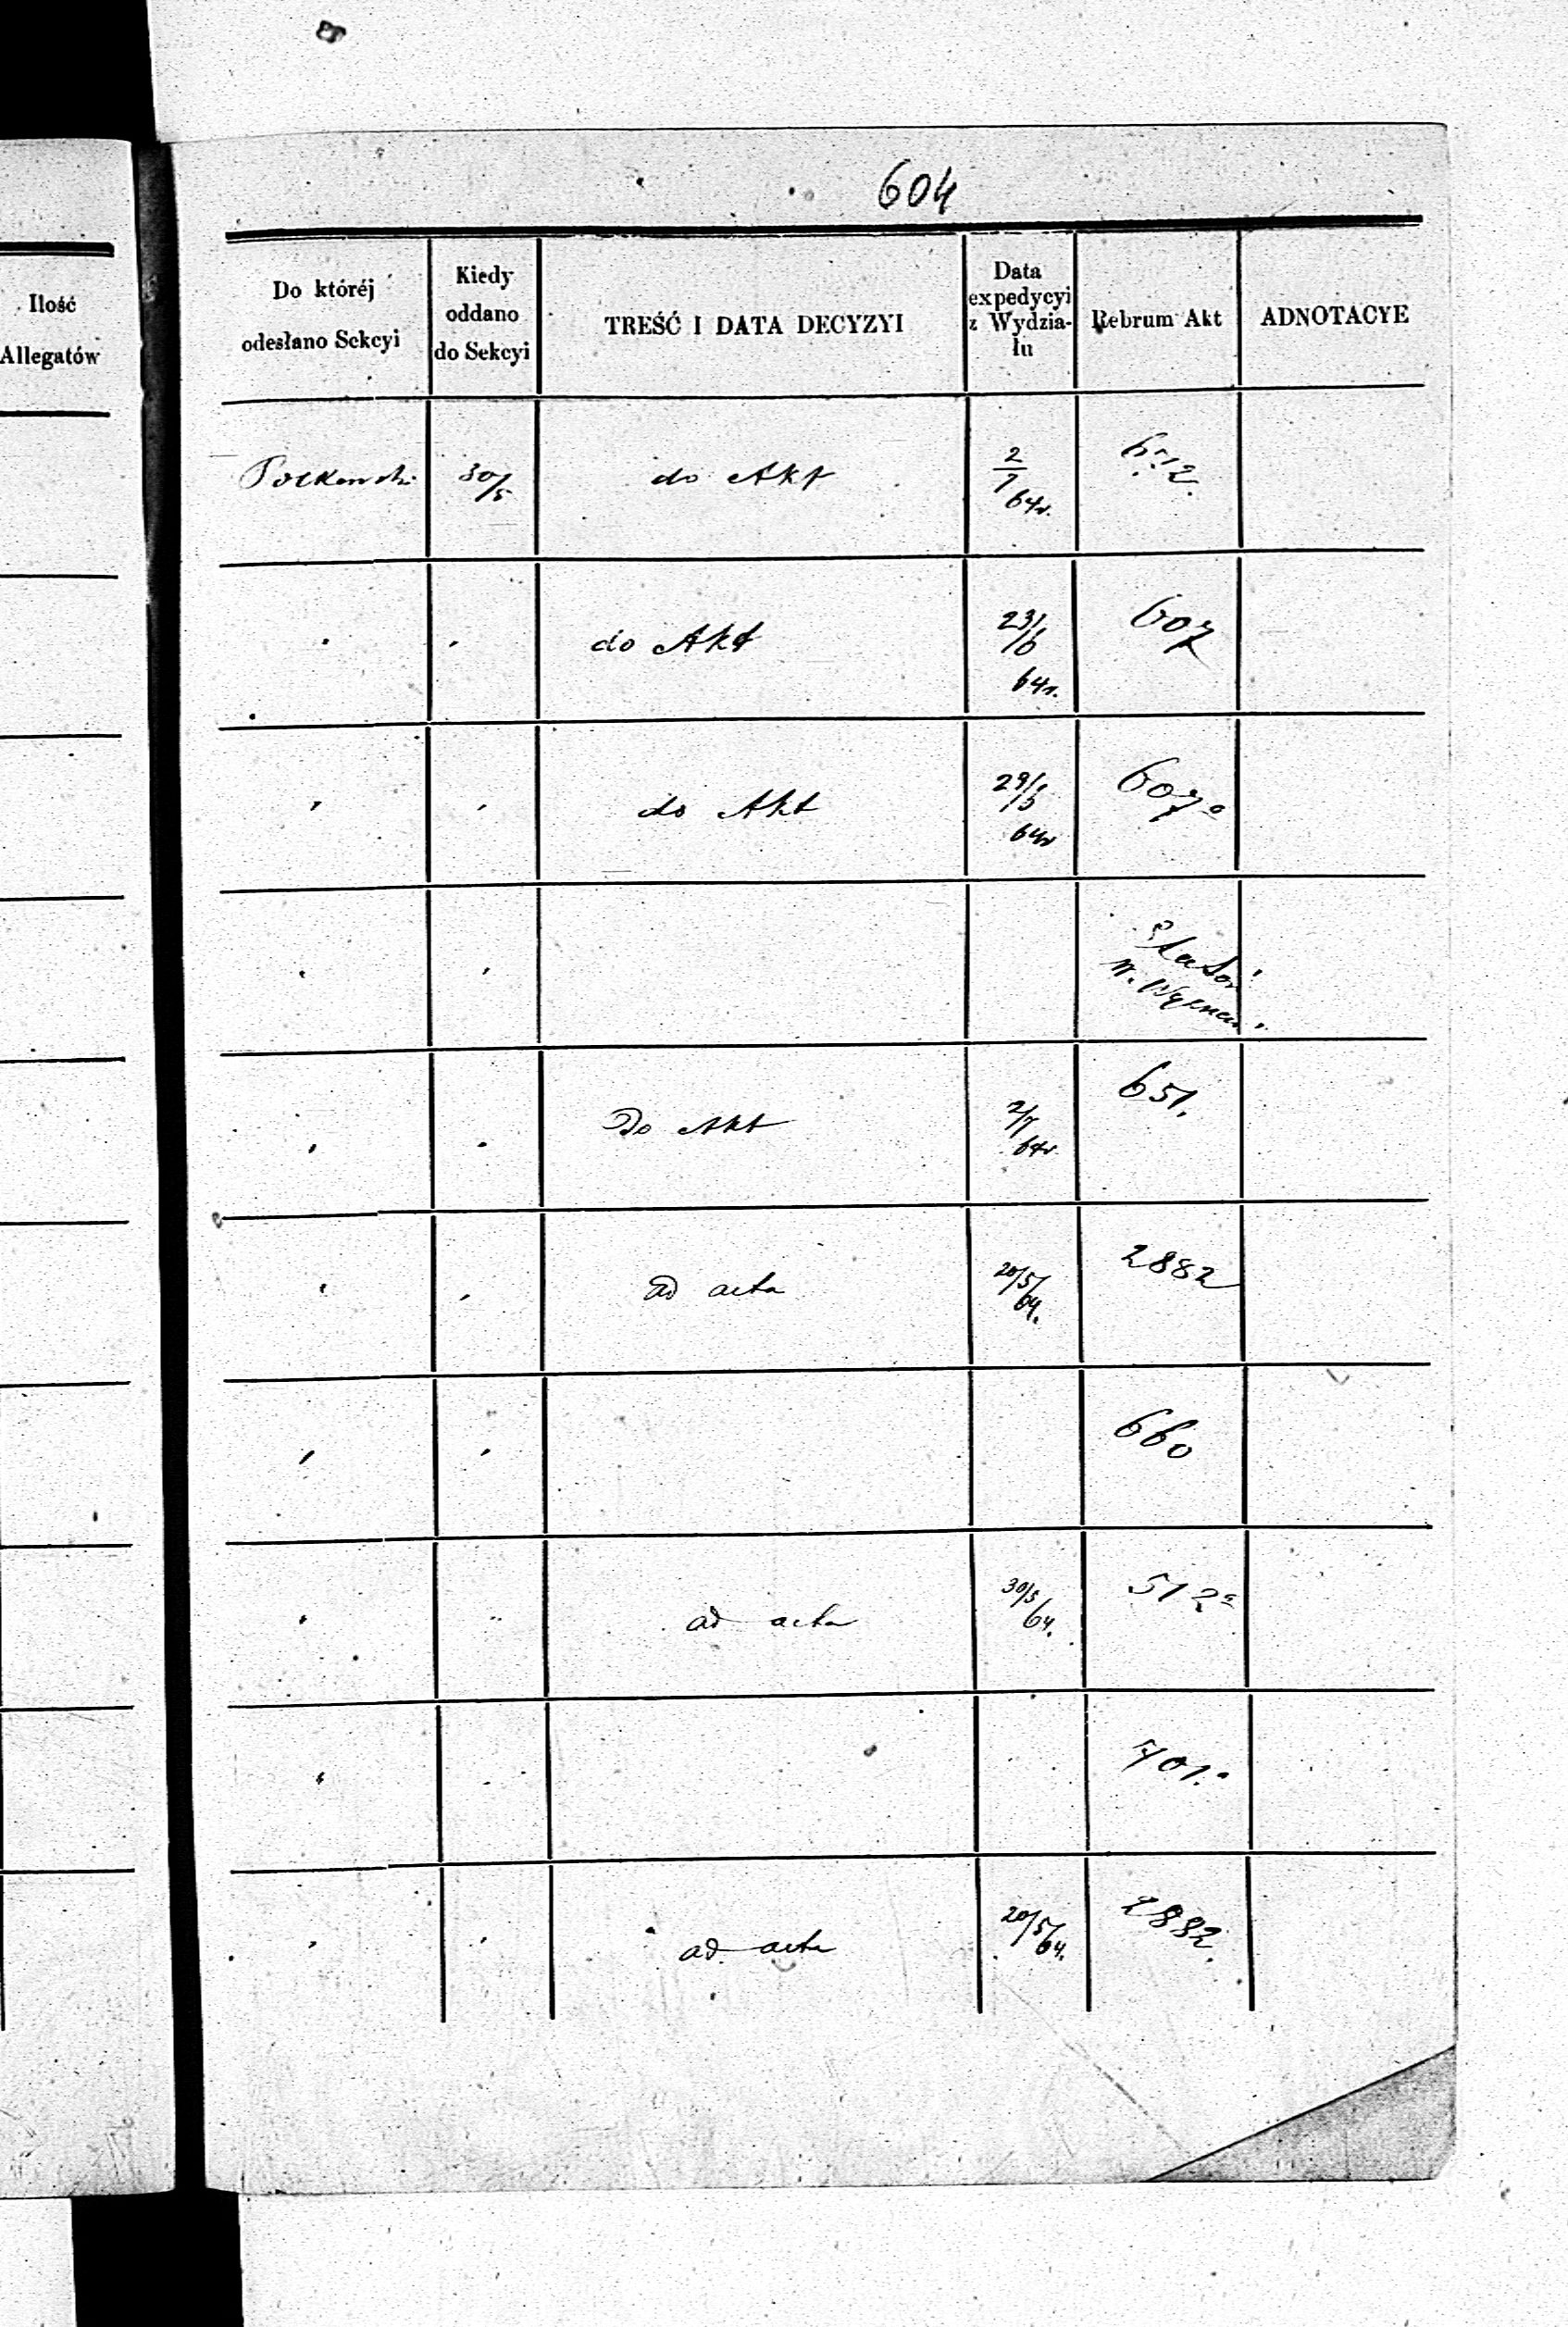 604
Ilość
Allegatów
Do któréj
odesłano Sekcyi
Kiedy
oddano
do Sekcyi
TREŚĆ I DATA DECYZYI
Data
expedycyi
z Wydzia-
łu
Rebrum Akt
ADNOTACYE
30/5
do Akt
2/7
64r.
do Akt
23/6
64r.
607
do Akt
64r
607a
Do Akt
2/7
64r.
651.
ad acta
20/5/
64.
2882
660
ad acta
30/5
/64.
512a
701.
ad acta
20/5/
64.
2882.